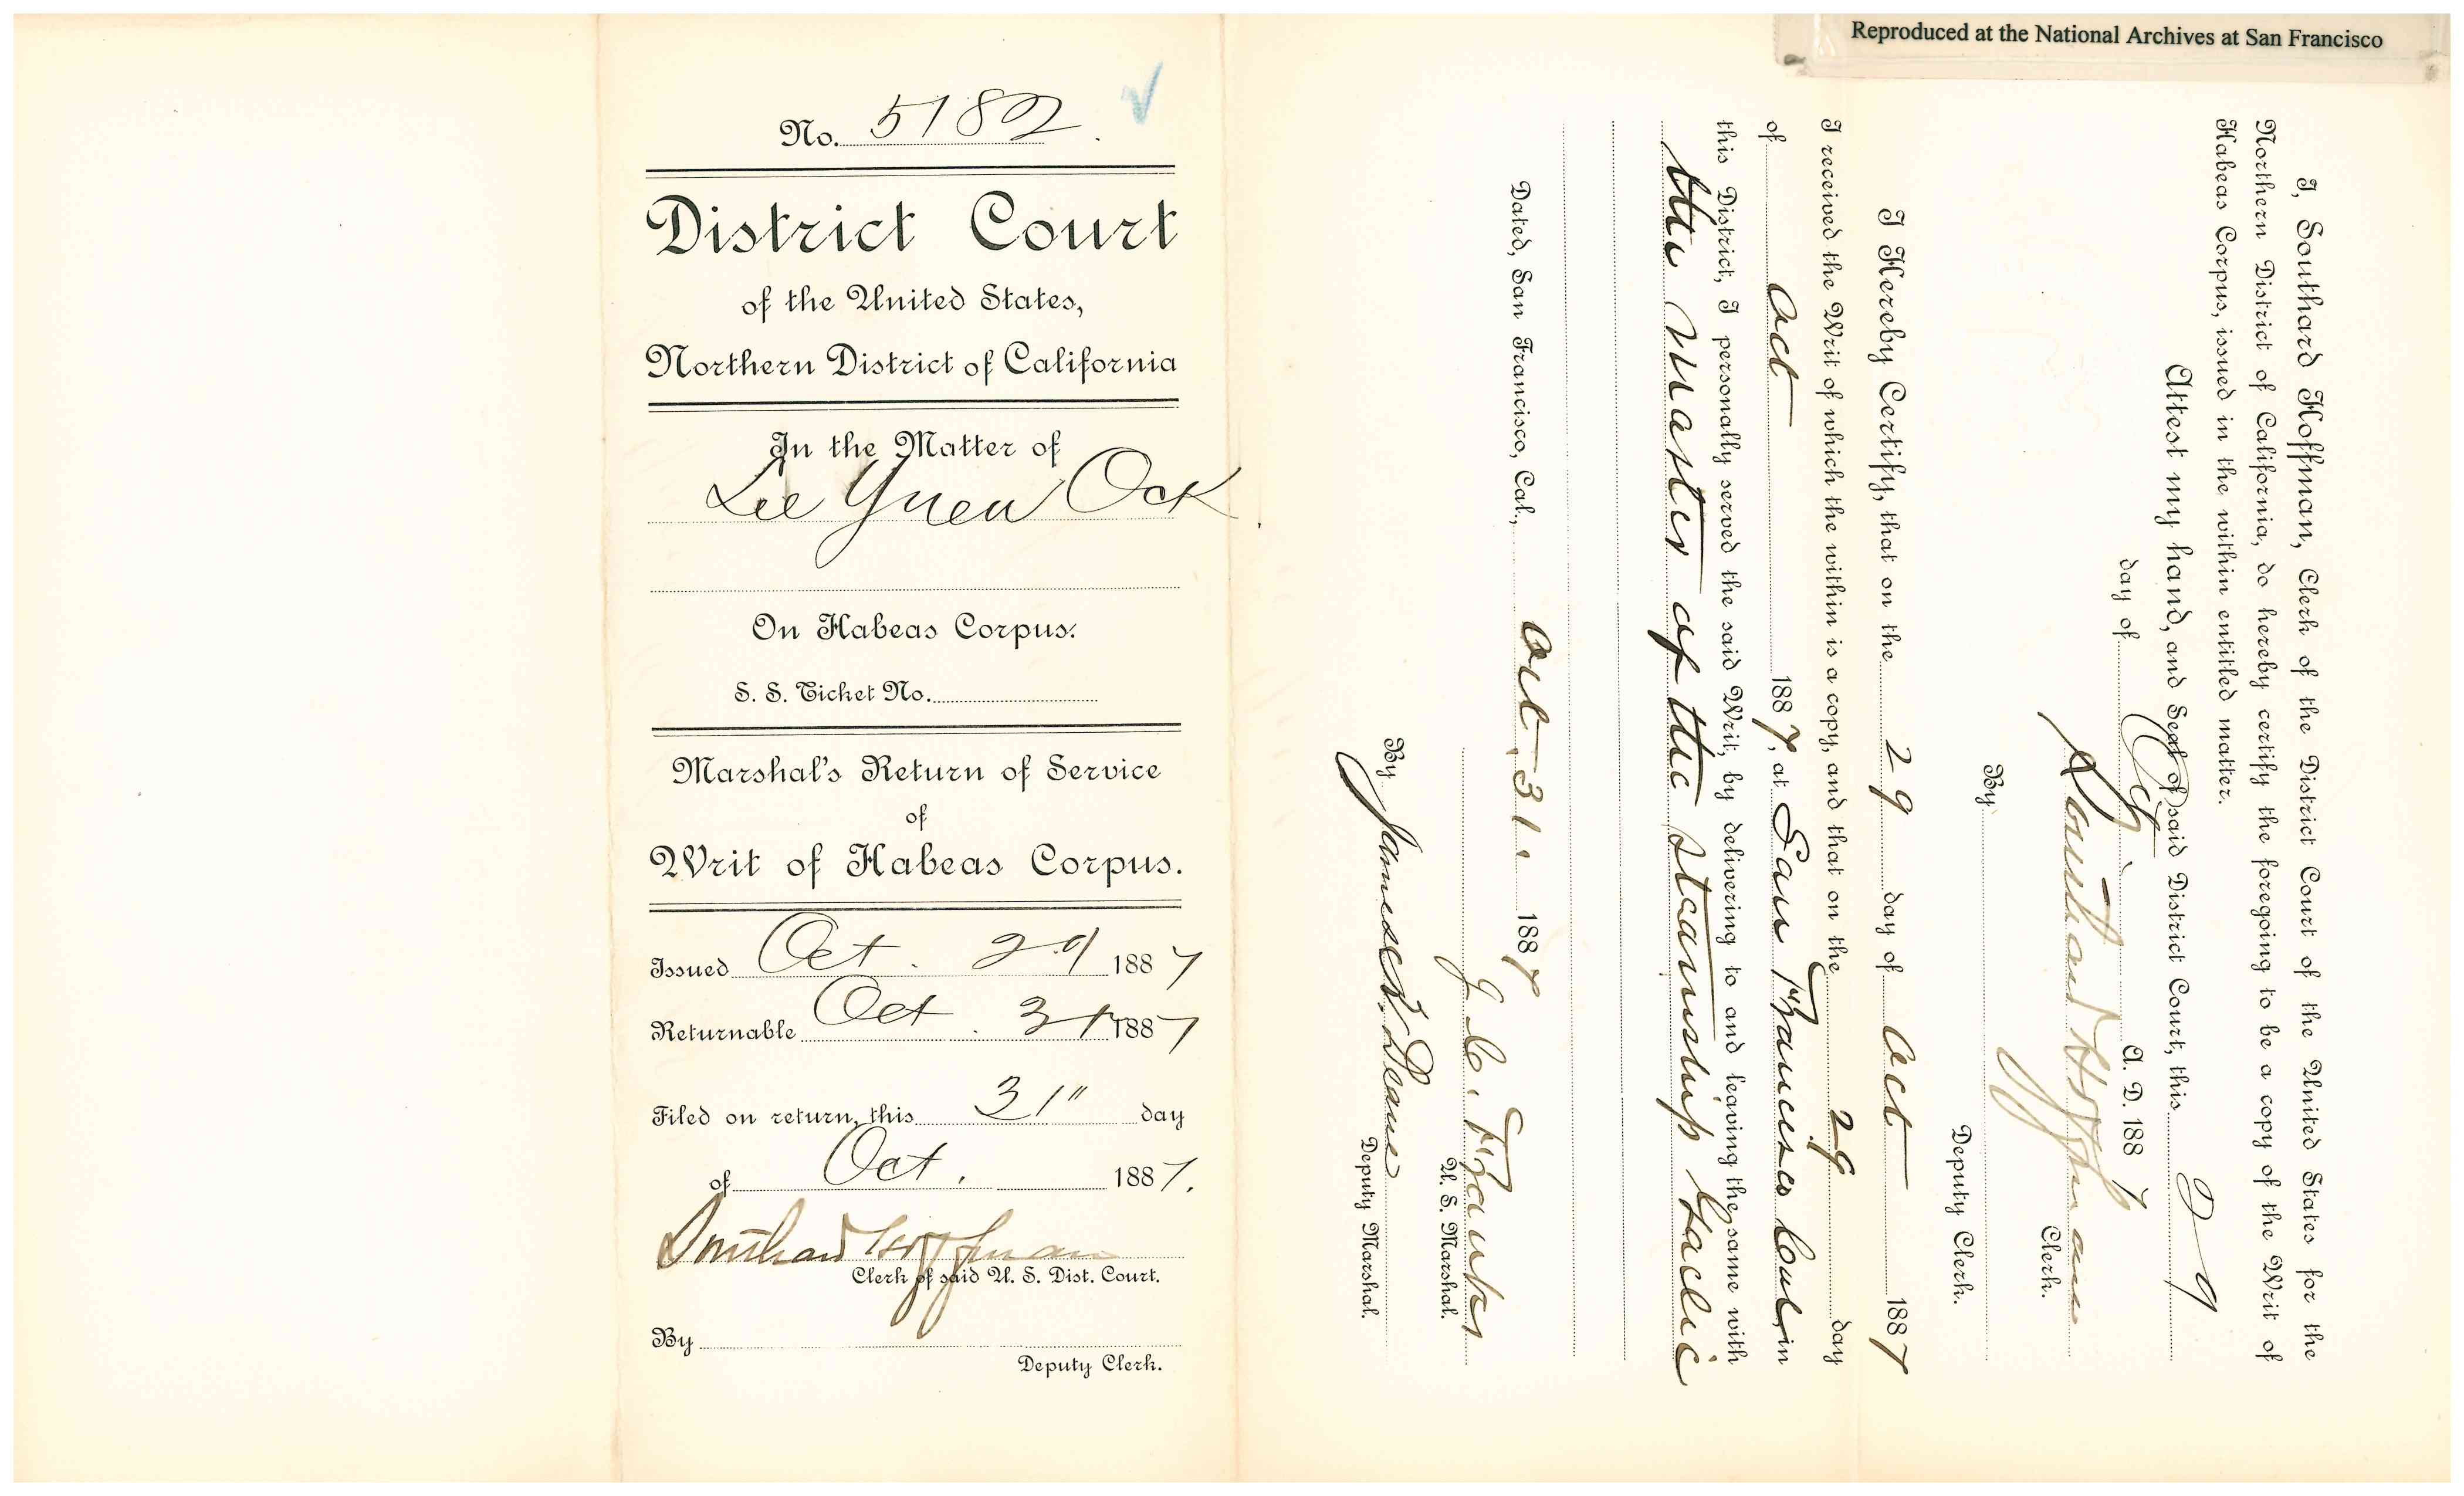 Reproduced at the National Archives at San Francisco
No. 5182.
District Court
of the United States,
Northern District of California
In the Matter of
Lee Yuen Ock
On Habeas Corpus.
S. S. Ticket No.
Marshal's Return of Service
of
Writ of Habeas Corpus.
Issued Oct. 29 1887
Returnable Oct. 31 1887
Filed on return, this 31" day
of Oct. 1887.
Southard Hoffman
Clerk of said U. S. Dist. Court.
By
Deputy Clerk.
I, Southard Hoffman, Clerk of the District Court of the United States for the
Northern District of California, do hereby certify the foregoing to be a copy of the Writ of
Habeas Corpus, issued in the within entitled matter.
Attest my hand, and Seal of said District Court, this 29
day of Oct. A. D. 1887
Southard Hoffman
Clerk.
By
Deputy Clerk.
I Hereby Certify, that on the 29 day of Oct 1887
I received the Writ of which the within is a copy, and that on the 29 day
of Oct 1887, at San Francisco Cal, in
this District, I personally served the said Writ, by delivering to and leaving the same with
the master of the steamship Gaelic
Dated, San Francisco, Cal., Oct. 31. 1887
J. C. Franks
U. S. Marshal.
By Deane
Deputy Marshal.